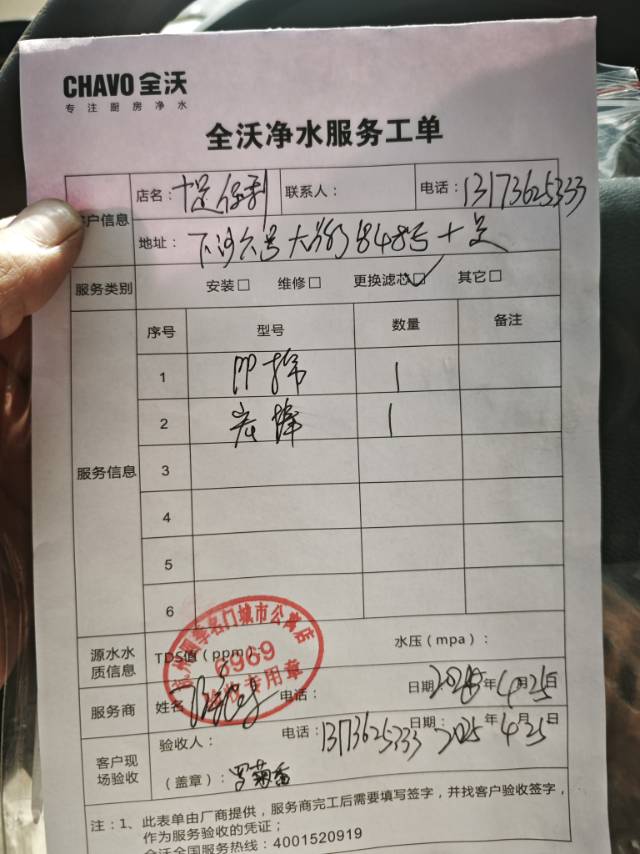 CHAVO 全沃
专注厨房净水
全沃净水服务工单
客户信息
店名：十足保利 联系人： 电话：13173625333
地址：下沙六号大街848号十足
服务类别 安装□ 维修□ 更换滤芯□ 其它□
服务信息
序号 型号 数量 备注
1 PP棉 1
2 炭棒 1
3
4
5
6
源水水质信息 TDS值（ppm） 水压（mpa）：
名门城市公寓店
6969
专用章
服务商 姓名 电话： 日期：2025年4月25日
客户现场验收 验收人： 电话：13173625333 日期：2025年4月25日
（盖章）：罗菊香
注：1、此表单由厂商提供，服务商完工后需要填写签字，并找客户验收签字，
作为服务验收的凭证；
全沃全国服务热线：4001520919